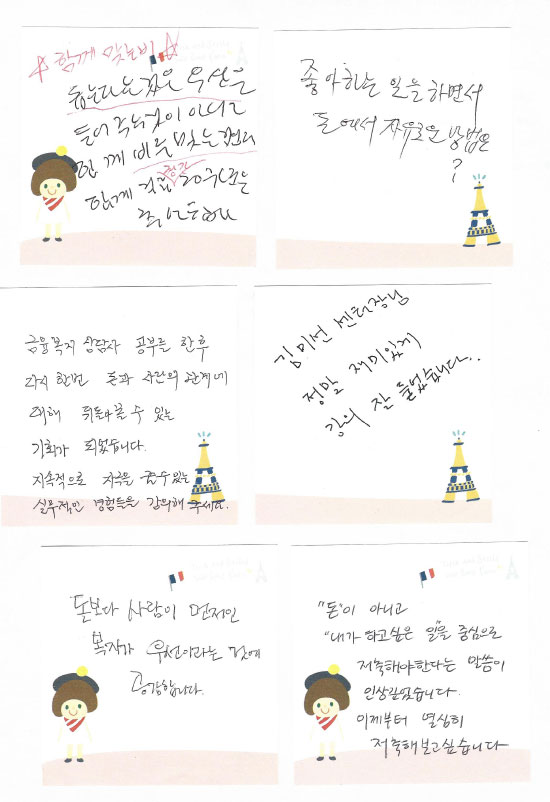 ☆ 함께 맞는 비 ☆
돕는다는 것은 우산을
들어 주는 것이 아니라
함께 비를 맞는 것이다
함께 공감
20주년을
좋아하는 일을 하면서
돈에서 자유로운 방법은
?
금융복지 상담사 공부를 한 후
다시 한번 돈과 사람의 관계에
대해 뒤돌아볼 수 있는
기회가 되었습니다.
지속적으로 자극을 줄 수 있는
실무적인 경험들을 강의해 주세요.
김미선 센터장님
정말 재미있게
강의 잘 들었습니다..
돈보다 사람이 먼저인
복지가 우선이라는 것에
공감합니다.
"돈"이 아니고
"내가 하고싶은 일"을 중심으로
저축해야한다는 말씀이
인상깊었습니다.
이제부터 열심히
저축해보고싶습니다